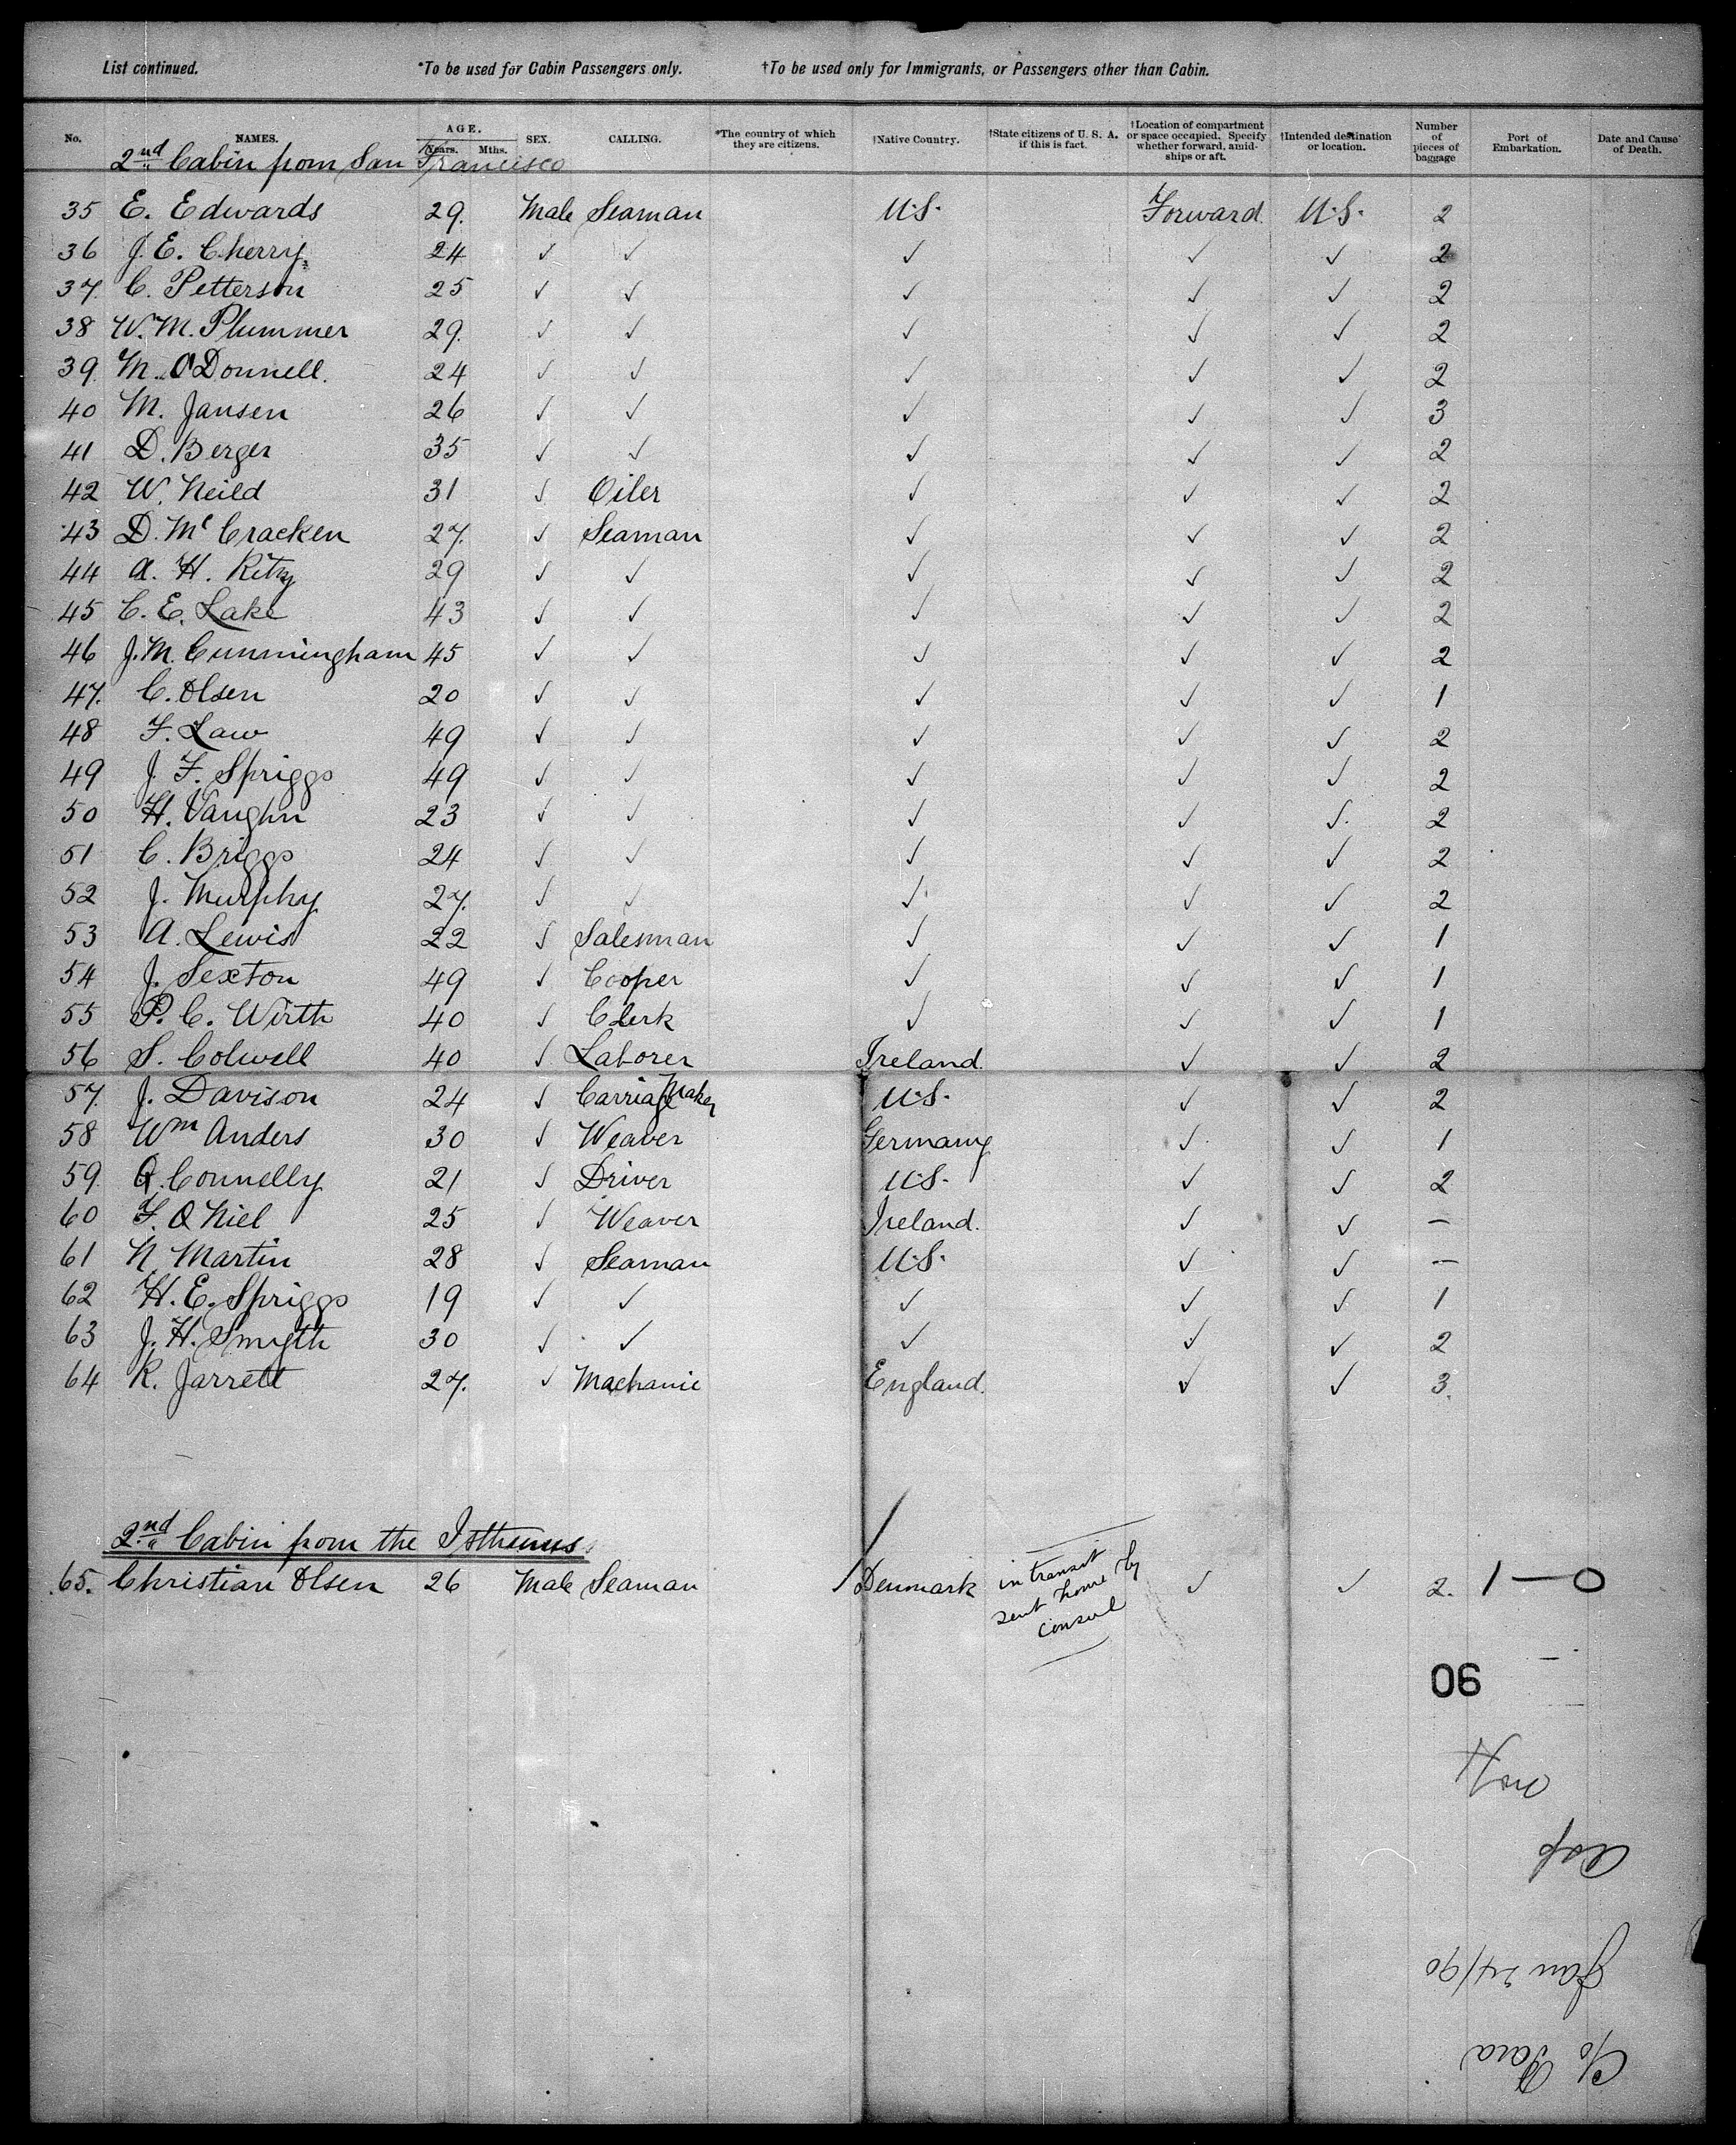 List continued. *To be used for Cabin Passengers only. †To be used only for Immigrants, or Passengers other than Cabin.
No. NAMES. AGE. Years. Mths. SEX. CALLING. *The country of which they are citizens. †Native Country. †State citizens of U. S. A. if this is fact. †Location of compartment or space occupied. Specify whether forward, amidships or aft. †Intended destination or location. Number of pieces of baggage Port of Embarkation. Date and Cause of Death.
2nd Cabin from San Francisco
35 E. Edwards 29. Male Seaman U.S. Forward. U.S. 2
36 J. E. Cherry. 24 ✓ ✓ ✓ ✓ ✓ 2
37. C. Petterson 25 ✓ ✓ ✓ ✓ ✓ 2
38 W. M. Plummer 29. ✓ ✓ ✓ ✓ ✓ 2
39. M. O'Donnell. 24 ✓ ✓ ✓ ✓ ✓ 2
40 M. Jansen 26 ✓ ✓ ✓ ✓ ✓ 3
41 D. Berger 35 ✓ ✓ ✓ ✓ ✓ 2
42 W. Neild 31 ✓ Oiler ✓ ✓ ✓ 2
43 D. Mc Cracken 27. ✓ Seaman ✓ ✓ ✓ 2
44 A. H. 29 ✓ ✓ ✓ ✓ ✓ 2
45 C. E. Lake 43 ✓ ✓ ✓ ✓ ✓ 2
46 J. M. Cunningham 45 ✓ ✓ ✓ ✓ ✓ 2
47. C. Olsen 20 ✓ ✓ ✓ ✓ ✓ 1
48 F. Law 49 ✓ ✓ ✓ ✓ ✓ 2
49 J. F. Spriggs 49 ✓ ✓ ✓ ✓ ✓ 2
50 H. Vaughn 23 ✓ ✓ ✓ ✓ ✓ 2
51 C. Briggs 24 ✓ ✓ ✓ ✓ ✓ 2
52 J. Murphy 27. ✓ ✓ ✓ ✓ ✓ 2
53 A. Lewis 22 ✓ Salesman ✓ ✓ ✓ 1
54 J. Sexton 49 ✓ Cooper ✓ ✓ ✓ 1
55 P. C. Wirth 40 ✓ Clerk ✓ ✓ ✓ 1
56 S. Colwell 40 ✓ Laborer Ireland. ✓ ✓ 2
57. J. Davison 24 ✓ Carriage Maker U.S. ✓ ✓ 2
58 Wm Anders 30 ✓ Weaver Germany ✓ ✓ 1
59. Connelly 21 ✓ Driver U.S. ✓ ✓ 2
60 F. O Niel 25 ✓ Weaver Ireland. ✓ ✓ –
61 N Martin 28 ✓ Seaman U.S. ✓ ✓ –
62 H. E. Spriggs 19 ✓ ✓ ✓ ✓ ✓ 1
63 J. H. Smyth 30 ✓ ✓ ✓ ✓ ✓ 2
64 R. Jarrett 27. ✓ Machanic England. ✓ ✓ 3.
2nd Cabin from the Isthmus
65. Christian Olsen 26 Male Seaman Denmark in transit sent home by consul ✓ ✓ 2. 1—0
90
Asp
Jan 24/90
C/o Para